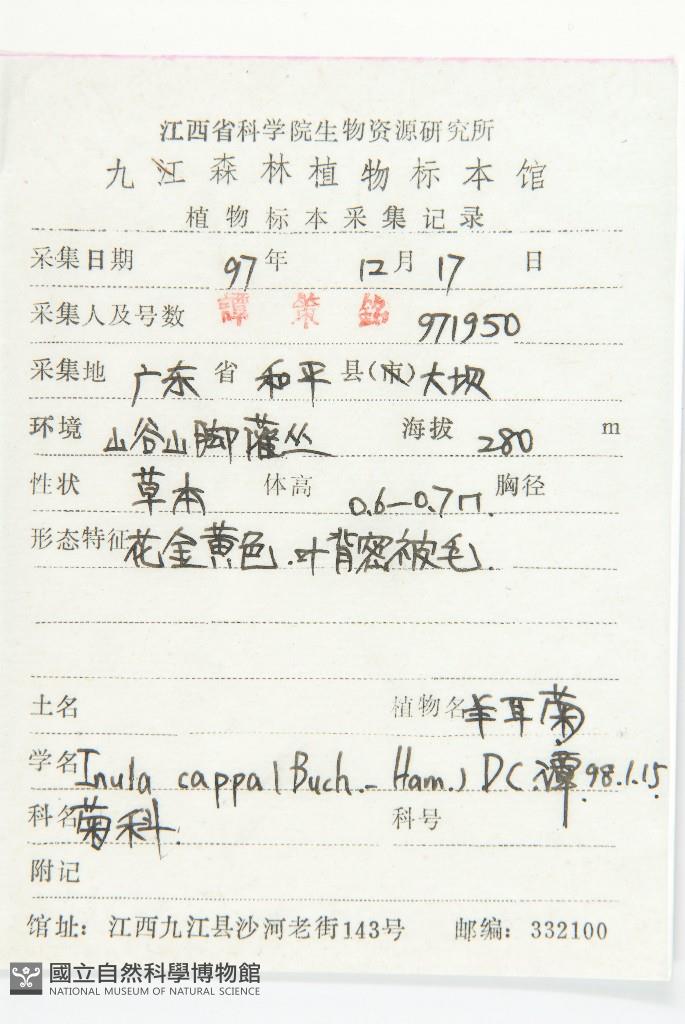 江西省科学院生物资源研究所
九江森林植物标本馆
植物标本采集记录
采集日期 97年 12月17 日
采集人及号数 譚策銘 971950
采集地 广东省 和平县(市)大坝
环境 山谷山脚灌丛 海拔 280 m
性状 草本 体高 0.6-0.7m. 胸径
形态特征 花金黄色.叶背密被毛.
土名 植物名 羊耳菊
学名 Inula cappa (Buch.-Ham.) DC. 譚 98.1.15.
科名 菊科. 科号
附记
馆址：江西九江县沙河老街143号 邮编：332100
國立自然科學博物館
NATIONAL MUSEUM OF NATURAL SCIENCE